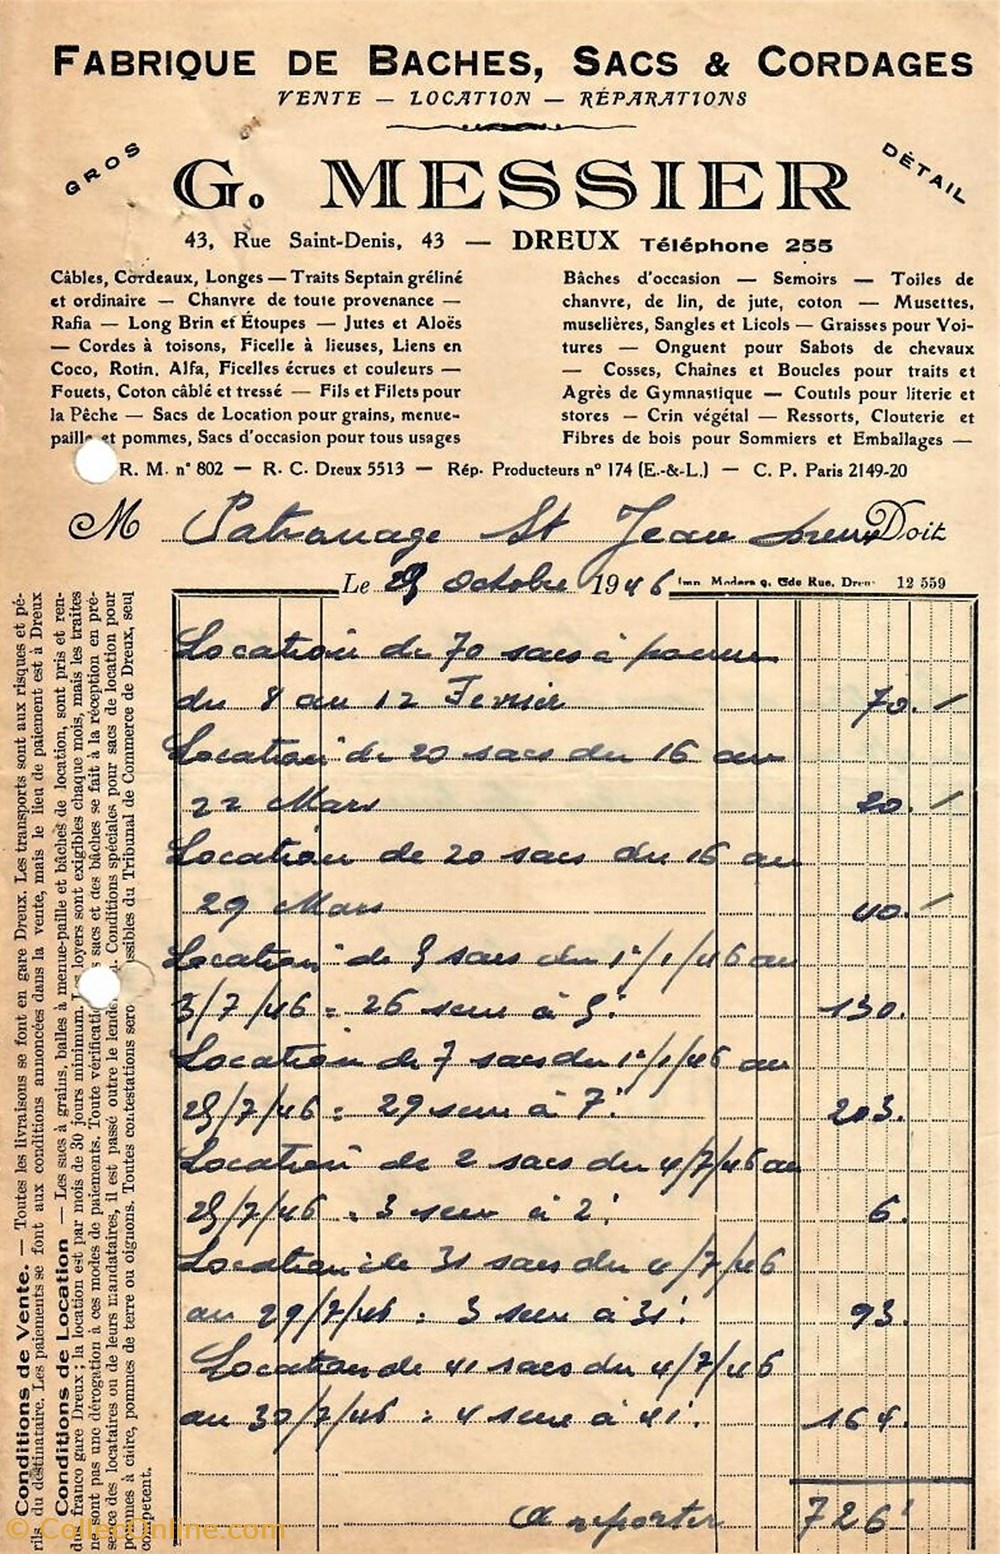 FABRIQUE DE BACHES, SACS & CORDAGES
VENTE — LOCATION — RÉPARATIONS
GROS
DÉTAIL
G. MESSIER
43, Rue Saint-Denis, 43 — DREUX Téléphone 255
Câbles, Cordeaux, Longes — Traits Septain gréliné
et ordinaire — Chanvre de toute provenance —
Rafia — Long Brin et Étoupes — Jutes et Aloës
— Cordes à toisons, Ficelle à lieuses, Liens en
Coco, Rotin, Alfa, Ficelles écrues et couleurs —
Fouets, Coton câblé et tressé — Fils et Filets pour
la Pêche — Sacs de Location pour grains, menue-
paille et pommes, Sacs d'occasion pour tous usages
Bâches d'occasion — Semoirs — Toiles de
chanvre, de lin, de jute, coton — Musettes,
muselières, Sangles et Licols — Graisses pour Voi-
tures — Onguent pour Sabots de chevaux
— Cosses, Chaînes et Boucles pour traits et
Agrès de Gymnastique — Coutils pour literie et
stores — Crin végétal — Ressorts, Clouterie et
Fibres de bois pour Sommiers et Emballages —
R. M. n° 802 — R. C. Dreux 5513 — Rép. Producteurs n° 174 (E.-&-L.) — C. P. Paris 2149-20
M Patronage St Jean Dreux Doit
Le 25 Octobre 1946 Imp. Moderne, Gde Rue, Dreux 12 559
Location de 70 sacs à pommes
du 8 au 12 Fevrier 70.
Location de 20 sacs du 16 au
22 Mars 20.
Location de 20 sacs du 16 au
29 Mars 40.
Location de 5 sacs du 1er/1/46 au
3/7/46 = 26 sem à 5! 130.
Location de 7 sacs du 1er/1/46 au
25/7/46 = 29 sem à 7! 203.
Location de 2 sacs du 4/7/46 au
25/7/46 = 3 sem à 2! 6.
Location de 31 sacs du 4/7/46
au 29/7/46 = 3 sem à 31! 93.
Location de 41 sacs du 4/7/46
au 30/7/46 = 4 sem à 41! 164.
A reporter 726!
Conditions de Vente. — Toutes les livraisons se font en gare Dreux. Les transports sont aux risques et pé-
rils du destinataire. Les paiements se font aux conditions annoncées dans la vente, mais le lieu de paiement est à Dreux
Conditions de Location — Les sacs à grains, balles à menue-paille et bâches de location, sont pris et ren-
du franco gare Dreux ; la location est par mois de 30 jours minimum. Les loyers sont exigibles chaque mois, mais les traites
ne sont pas une dérogation à ces modes de paiements. Toute vérification sacs et des bâches se fait à la réception en pré-
sence des locataires ou de leurs mandataires, il est passé outre le lende Conditions spéciales pour sacs de location pour
pommes à cidre, pommes de terre ou oignons. Toutes contestations sero ssibles du Tribunal de Commerce de Dreux, seul
compétent.
© CollecOnline.com